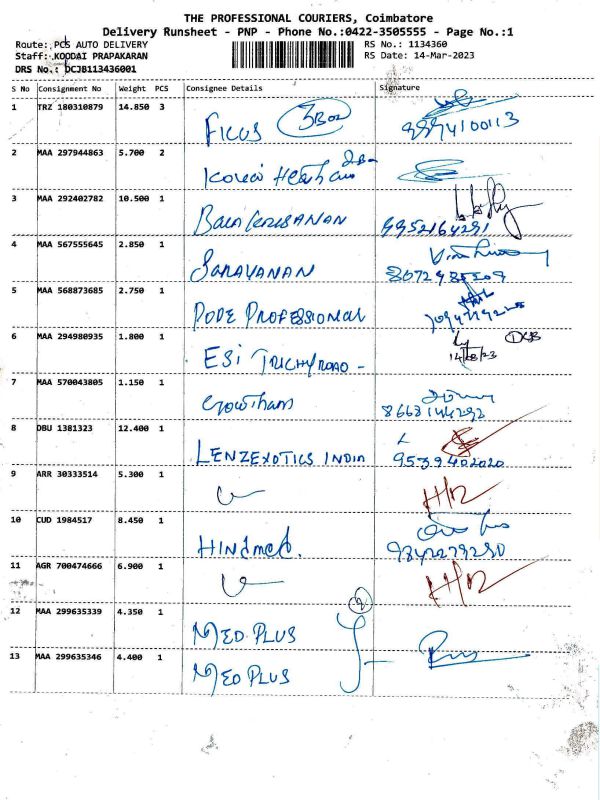 THE PROFESSIONAL COURIERS, Coimbatore
Delivery Runsheet - PNP - Phone No.:0422-3505555 - Page No.:1
Route: PCS AUTO DELIVERY
RS No.: 1134360
Staff: KOODAI PRAPAKARAN
RS Date: 14-Mar-2023
DRS No.: DCJB113436001
S No Consignment No Weight PCS Consignee Details Signature
1 TRZ 180310879 14.850 3 FICUS
2 MAA 297944863 5.700 2
3 MAA 292402782 10.500 1 9952164291
4 MAA 567555645 2.850 1 SARAVANAN
5 MAA 568873685 2.750 1 PROFESSIONAL
6 MAA 294980935 1.800 1 ESI TRICHY ROAD -
7 MAA 570043805 1.150 1 Gowtham 8668144292
8 DBU 1381323 12.400 1 LENZEXOTICS INDIA 9539402020
9 ARR 30333514 5.300 1
10 CUD 1984517 8.450 1 9842279290
11 AGR 700474666 6.900 1
12 MAA 299635339 4.350 1 MED PLUS
13 MAA 299635346 4.400 1 MED PLUS